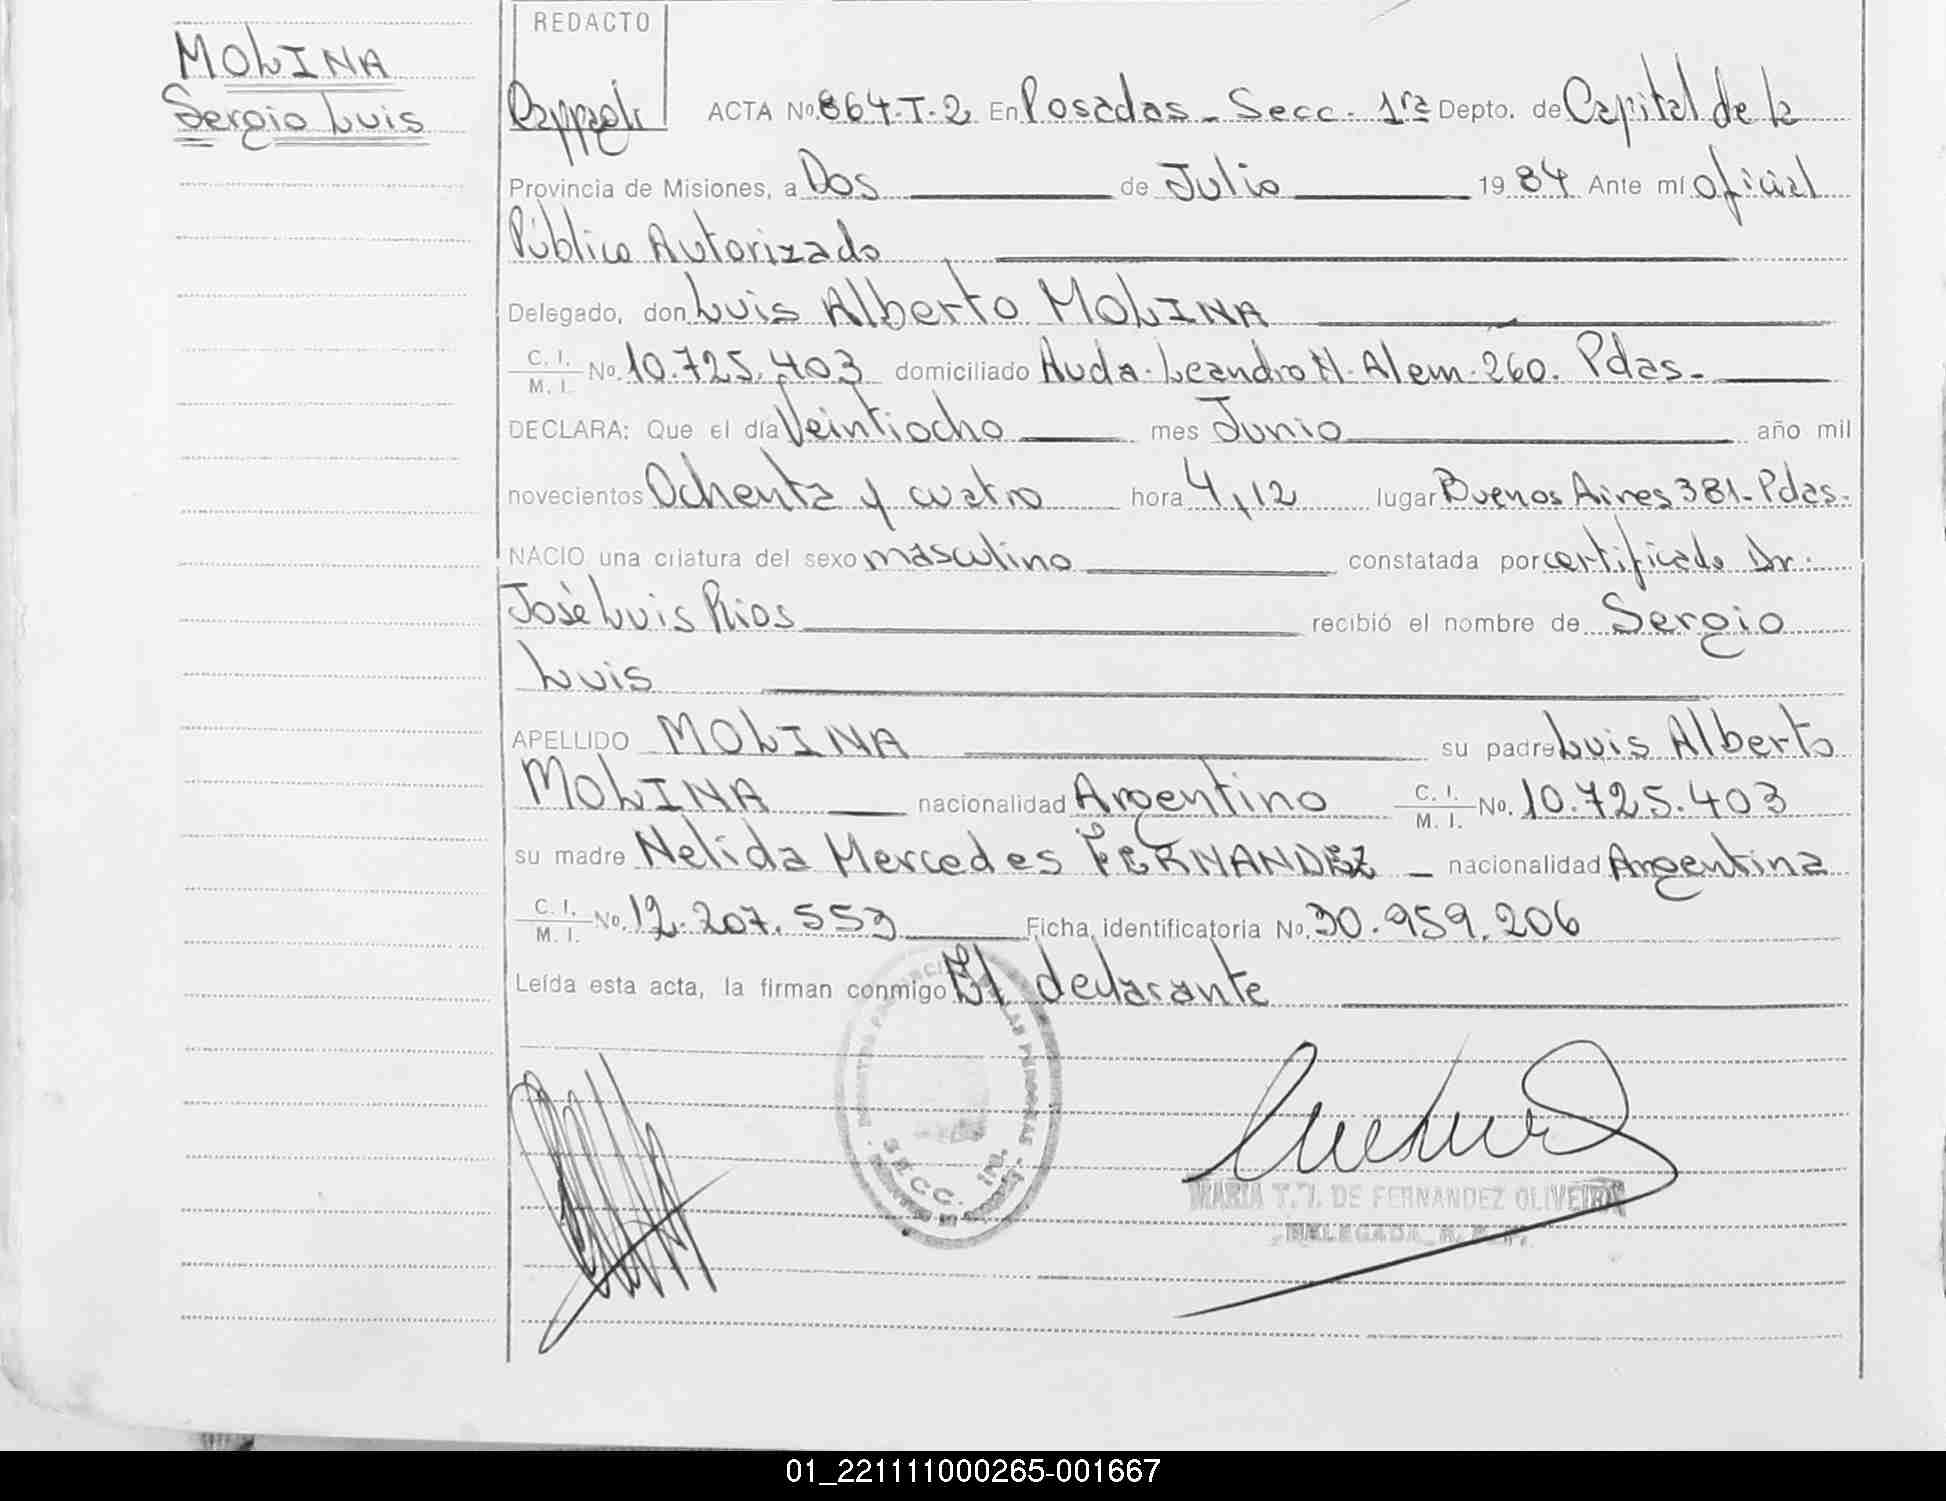 MOLINA
Sergio Luis
REDACTO
ACTA No. 864-T-2 En Posadas - Secc. 1ra Depto. de Capital de la
Provincia de Misiones, a Dos de Julio 1984 Ante mí oficial
Público Autorizado
Delegado, don Luis Alberto MOLINA
C. I. / M. I. No. 10.725.403 domiciliado Avda. Leandro N. Alem. 260. Pdas.-
DECLARA: Que el día Veintiocho mes Junio año mil
novecientos Ochenta y cuatro hora 4,12 lugar Buenos Aires 381-Pdas.
NACIO una criatura del sexo masculino constatada por certificado Dr.
José Luis Rios recibió el nombre de Sergio
Luis
APELLIDO MOLINA su padre Luis Alberto
MOLINA nacionalidad Argentino C. I. / M. I. No. 10.725.403
su madre Nelida Mercedes FERNANDEZ - nacionalidad Argentina
C. I. / M. I. No. 12.207.553 Ficha identificatoria No. 30.959.206
Leída esta acta, la firman conmigo El declarante
SECC. 1RA.
MARIA T. I. DE FERNANDEZ OLIVEIRA
DELEGADA R. P.
01_221111000265-001667